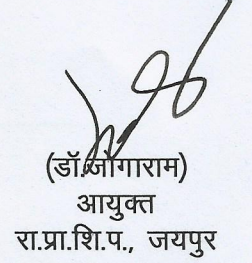 (डॉ.जोगाराम)
आयुक्त
रा.प्रा.शि.प., जयपुर